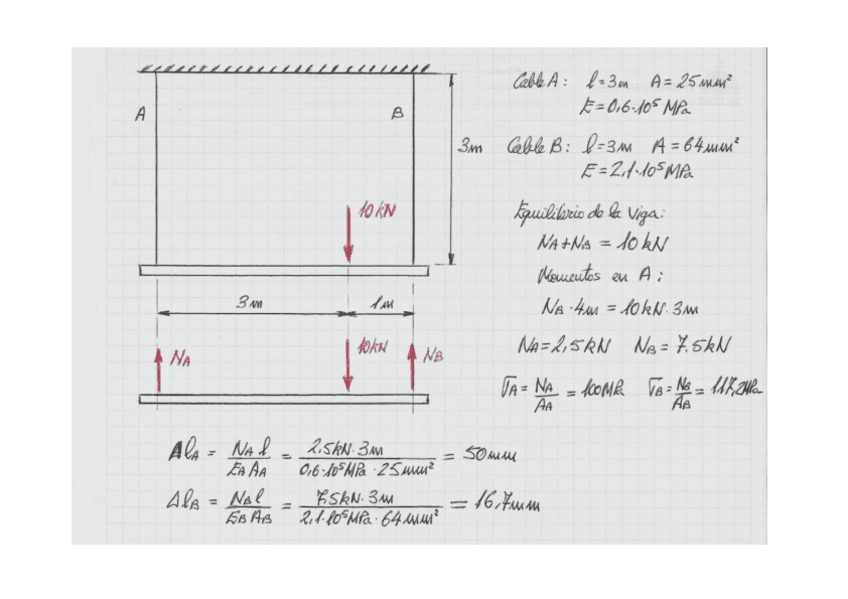 Cable A: l=3m A=25mm²
E=0,6·10⁵ MPa
A
B
3m
Cable B: l=3m A=64mm²
E=2,1·10⁵ MPa
10kN
Equilibrio de la Viga:
NA+NB = 10kN
Momentos en A:
NB·4m = 10kN·3m
3m
1m
NA=2,5kN NB=7.5kN
NA
10kN
NB
σA = NA/AA = 100MPa σB = NB/AB = 117,2MPa
ΔlA = NA l/EA AA = 2,5kN·3m/0,6·10⁵MPa·25mm² = 50mm
ΔlB = NB l/EB AB = 7,5kN·3m/2,1·10⁵MPa·64mm² = 16,7mm